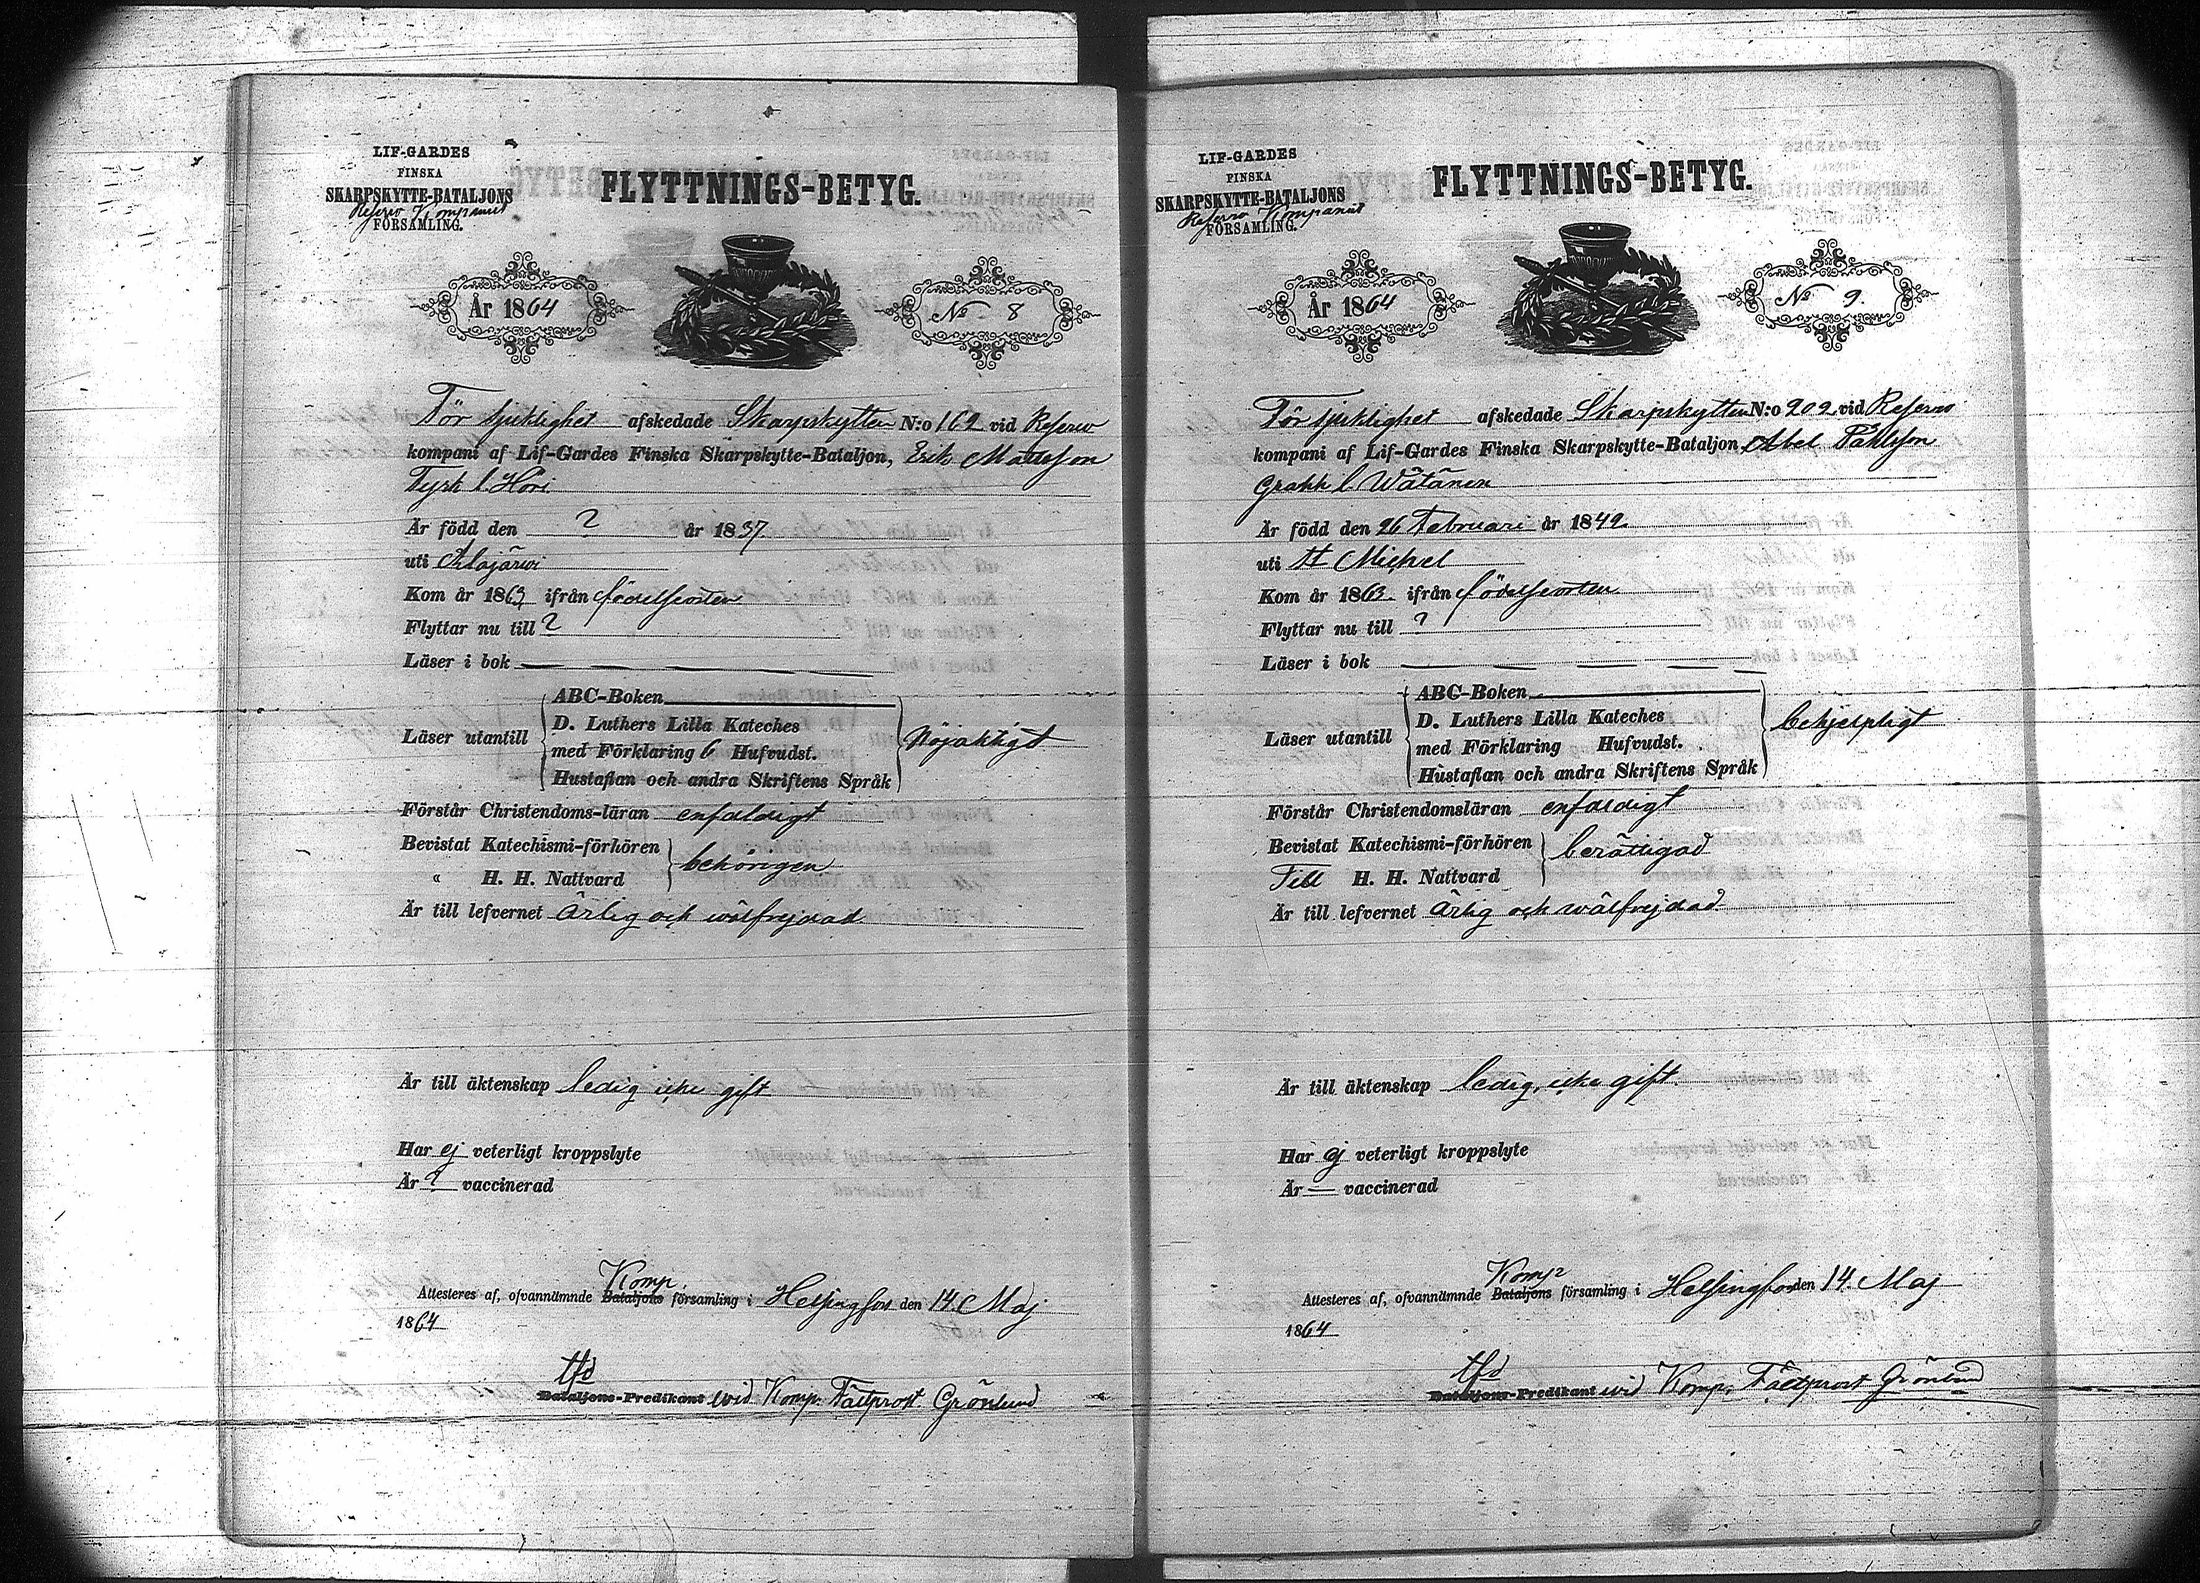 LIF-GARDES
FINSKA
SKARPSKYTTE-BATALJONS
Reserv Kompaniet
FÖRSAMLING.
FLYTTNINGS-BETYG.
År 1864
No 8
För sjuklighet afskedade Skarpskytten N:o 162 vid Reserv
kompani af Lif-Gardes Finska Skarpskytte-Bataljon, Erik Mattsson
Tyrk l. Hori
Är född den ? år 1837.
uti Alajärwi
Kom år 1863 ifrån födelseorten
Flyttar nu till ?
Läser i bok
Läser utantill
ABC-Boken
D. Luthers Lilla Kateches
med Förklaring 6 Hufvudst.
Hustaflan och andra Skriftens Språk
Nöjaktigt
Förstår Christendoms-läran enfaldigt
Bevistat Katechismi-förhören
" H. H. Nattvard
behörigen
Är till lefvernet Ärlig och wälfrejdad
Är till äktenskap ledig icke gift
Har ej veterligt kroppslyte
Är ? vaccinerad
Komp
Attesteres af, ofvannämnde Bataljons församling i Helsingfors den 14. Maj
1864
tfd
Bataljons-Predikant wid Komp. Fältprost Grönlund
LIF-GARDES
FINSKA
SKARPSKYTTE-BATALJONS
Reserv Kompaniet
FÖRSAMLING.
FLYTTNINGS-BETYG.
År 1864
No 9.
För sjuklighet afskedade Skarpskytten N:o 202 vid Reserv
kompani af Lif-Gardes Finska Skarpskytte-Bataljon, Abel Påhlsson
Grakk l. Wätänen
Är född den 26 Februari år 1842
uti St Michel
Kom år 1863. ifrån födelseorten
Flyttar nu till ?
Läser i bok
Läser utantill
ABC-Boken
D. Luthers Lilla Kateches
med Förklaring Hufvudst.
Hustaflan och andra Skriftens Språk
behjelpligt
Förstår Christendomsläran enfaldigt
Bevistat Katechismi-förhören
Till H. H. Nattvard
berättigad
Är till lefvernet Ärlig och wälfrejdad
Är till äktenskap ledig, icke gift.
Har ej veterligt kroppslyte
Är — vaccinerad
Komp
Attesteres af, ofvannämnde Bataljons församling i Helsingfors den 14. Maj
1864
tfd
Bataljons-Predikant wid Komp. Fältprost Grönlund